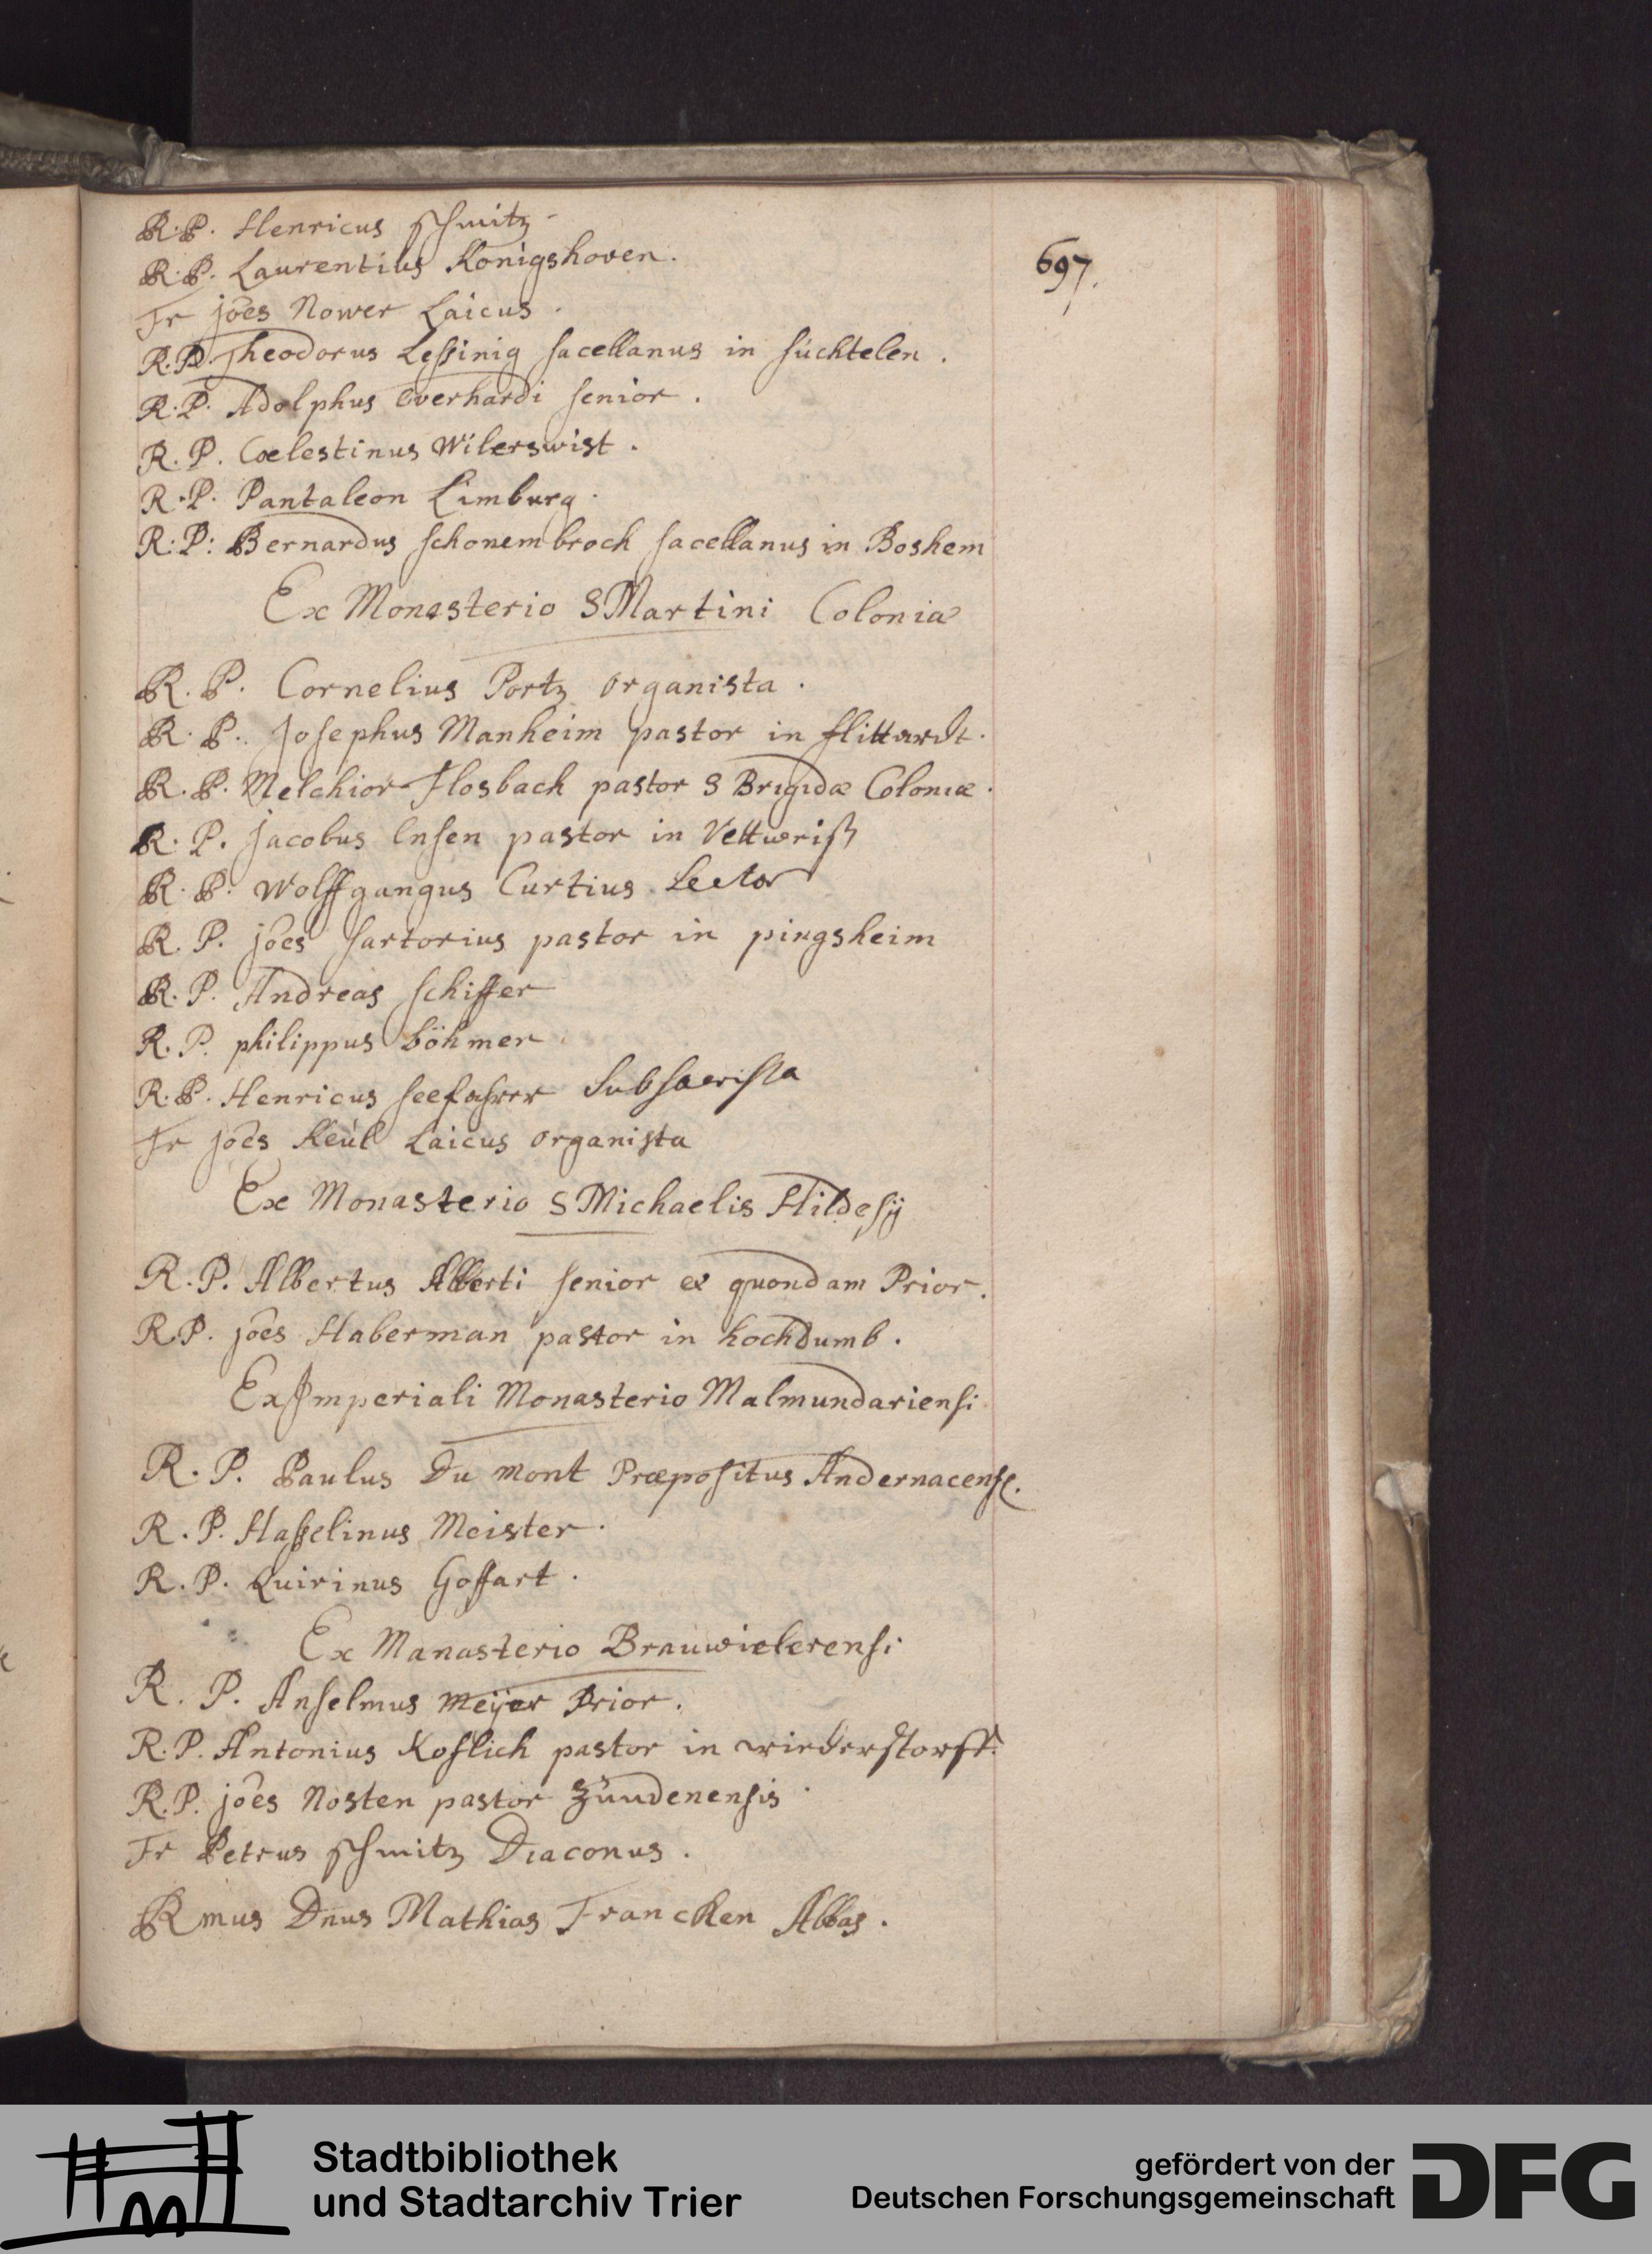 R. P. Henricus Schmitz
R. P. Laurentius Konigshoven.
Fr joes Nower Laicus.
R. P. Theodorus Leßinig sacellanus in süchtelen.
R. P. Adolphus Everhardi senior.
R. P. Cœlestinus Wilerswist.
R. P. Pantaleon Limburg.
R: P: Bernardus schonembroch sacellanus in Boshem
697.
Ex Monasterio S Martini Coloniæ
R. P. Cornelius Portz organista.
R. P. Josephus Manheim pastor in flittardt.
R. P. Melchior Flosbach pastor S Brigidæ Coloniæ.
R. P. Jacobus Ensen pastor in Vettweiß
R. P. Wolffgangus Curtius Lector
R. P. joes sartorius pastor in pingsheim
R. P. Andreas schiffer
R. P. philippus böhmer
R. P. Henricus seefahrer Subsacrista
Fr joes Keul Laicus organista
Ex Monasterio S Michaelis Hildesij
R. P. Albertus Alberti senior et quondam Prior.
R P. joes Haberman pastor in hochdumb.
Ex Imperiali Monasterio Malmundariensi
R. P. Paulus Du mont Præpositus Andernacense.
R. P. Haßelinus Meister.
R. P. Quirinus Goffart.
Ex Manasterio Brauwielerensi
R. P. Anselmus Meijer Prior.
R. P. Antonius Koslich pastor in wiederstorff.
R. P. joes Nosten pastor Zündenensis
Fr Petrus Schmitz Diaconus.
Rmus Dnus Mathias Francken Abbas.
Stadtbibliothek
und Stadtarchiv Trier
gefördert von der
Deutschen Forschungsgemeinschaft
DFG